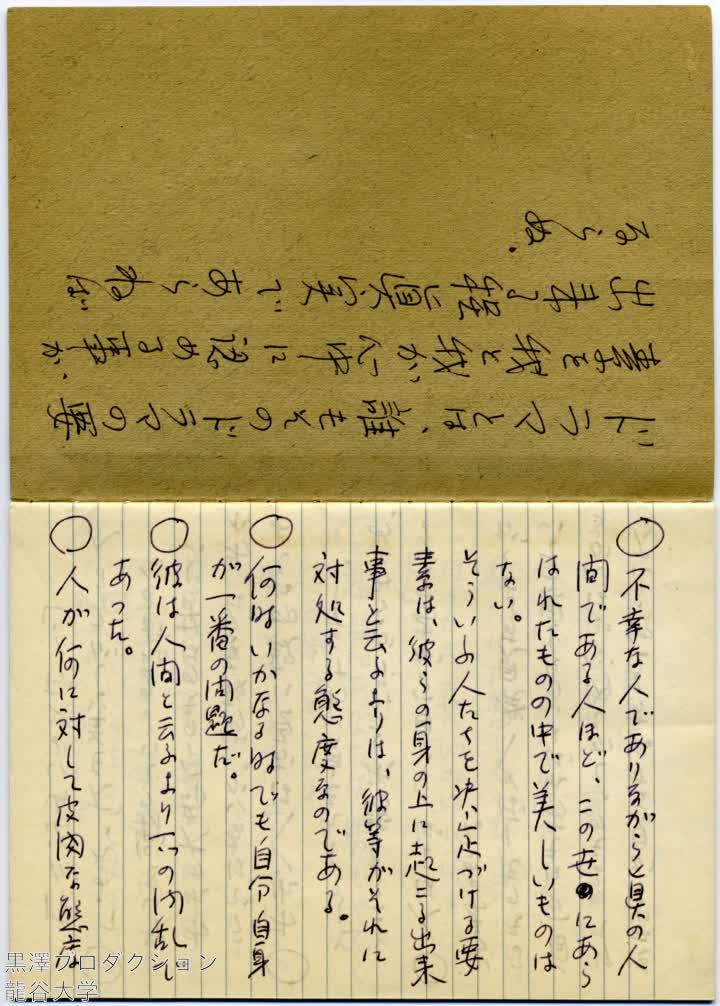 ドラマとは、誰もそのドラマの要
素を我と我が心中に認める事が、
出来る程真実であらねば
ならぬ。
○ 不幸な人でありながら真の人
間である人ほど、この世にあら
はれたものの中で美しいものは
ない。
そういふ人たちを決定づける要
素は、彼らの身の上に起こる出来
事と云ふよりは、彼等がそれに
対処する態度なのである。
○ 何時いかなる時でも自分自身
が一番の問題だ。
○ 彼は人間と云ふより一つの内乱で
あった。
○ 人が何に対して皮肉な態度
黒澤プロダクション
龍谷大学